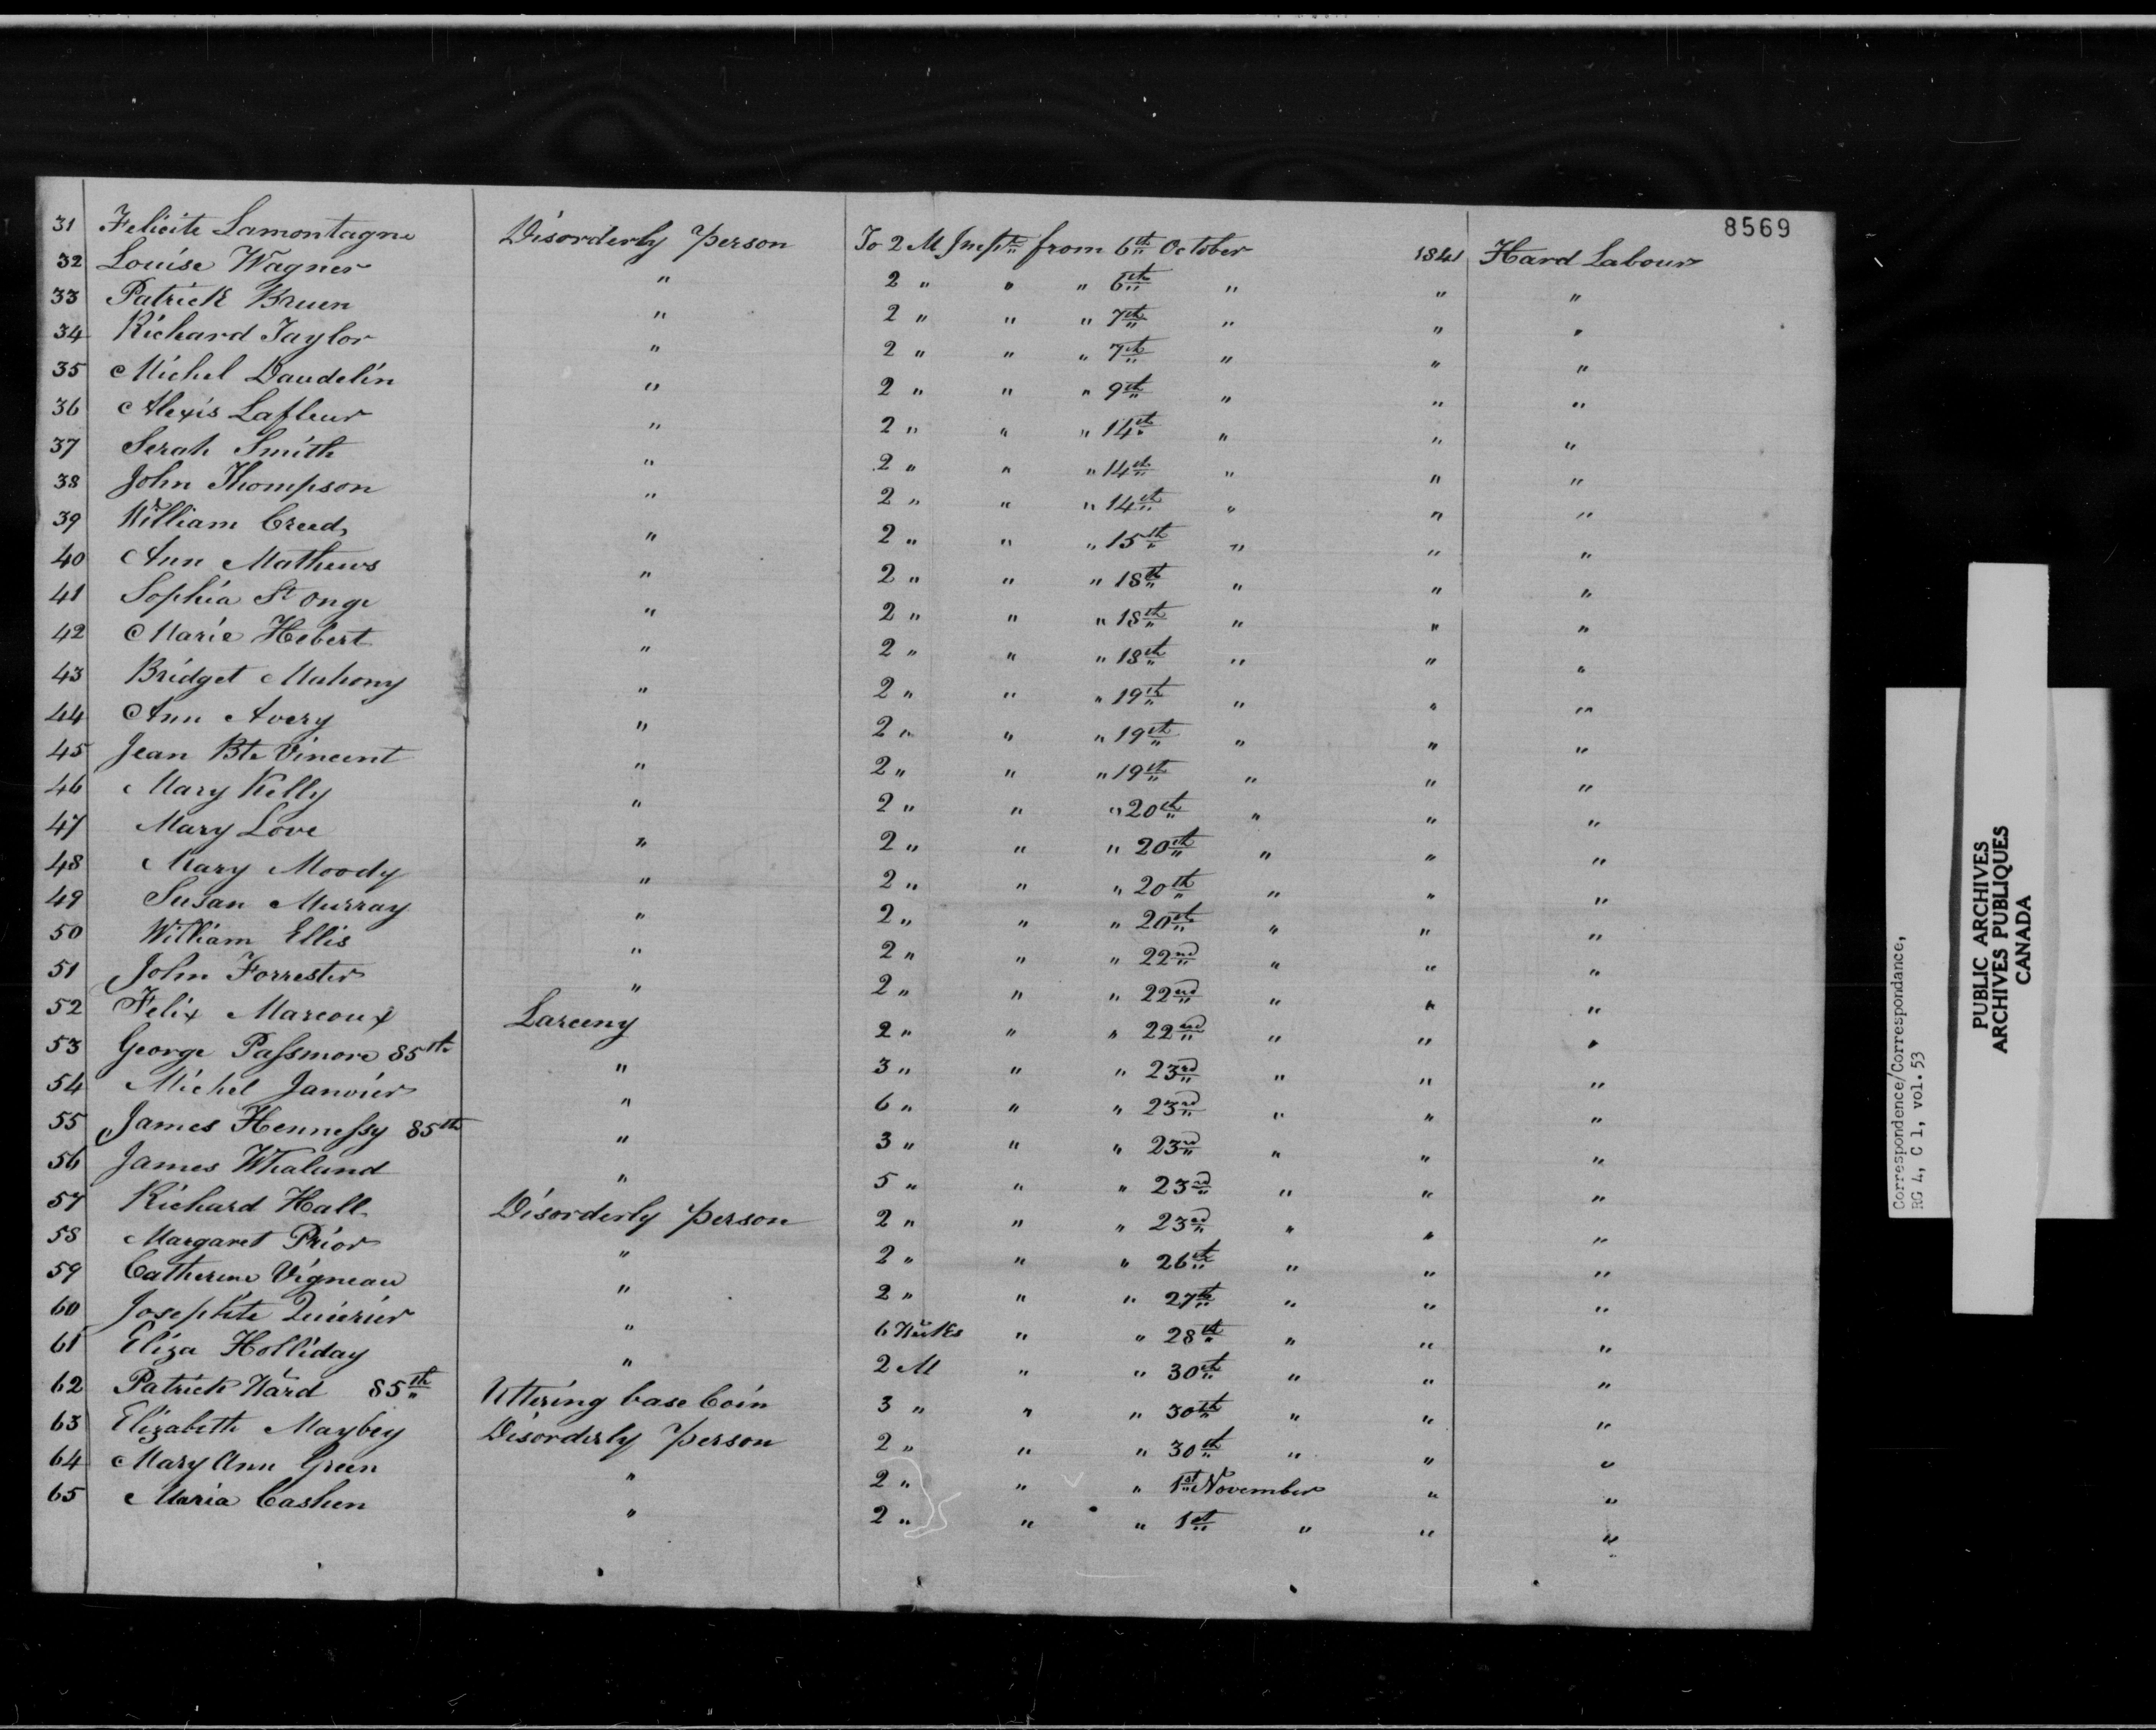 8569
31 Felicite Lamontagne Disorderly person To 2 M Impt from 6th October 1841 Hard Labour
32 Louise Wagner " 2 " " " 6th " " "
33 Patrick Bruen " 2 " " " 7th " " "
34 Richard Taylor " 2 " " " 7th " " "
35 Michel Daudelin " 2 " " " 9th " " "
36 Alexis Lafleur " 2 " " " 14th " " "
37 Serah Smith " 2 " " " 14th " " "
38 John Thompson " 2 " " " 14th " " "
39 William Creed " 2 " " " 15th " " "
40 Ann Mathews " 2 " " " 18th " " "
41 Sophia St Onge " 2 " " " 18th " " "
42 Marie Hebert " 2 " " " 18th " " "
43 Bridget Mahony " 2 " " " 19th " " "
44 Ann Avery " 2 " " " 19th " " "
45 Jean Bte Vincent " 2 " " " 19th " " "
46 Mary Kelly " 2 " " " 20th " " "
47 Mary Love " 2 " " " 20th " " "
48 Mary Moody " 2 " " " 20th " " "
49 Susan Murray " 2 " " " 20th " " "
50 William Ellis " 2 " " " 22nd " " "
51 John Forrester " 2 " " " 22nd " " "
52 Felix Marcoux Larceny 2 " " " 22nd " " "
53 George Passmore 85th " 3 " " " 23rd " " "
54 Michel Janvier " 6 " " " 23rd " " "
55 James Hennessy 85th " 3 " " " 23rd " " "
56 James Whaland " 5 " " " 23rd " " "
57 Richard Hall Disorderly person 2 " " " 23rd " " "
58 Margaret Prior " 2 " " " 26th " " "
59 Catherine Vigneau " 2 " " " 27th " " "
60 Josephte " 6 Weeks " " 28th " " "
61 Eliza Holliday " 2 M " " 30th " " "
62 Patrick Ward 85th Uttering base Coin 3 " " " 30th " " "
63 Elizabeth Maybey Disorderly person 2 " " " 30th " " "
64 Mary Ann Green " 2 " " " 1st November " "
65 Maria Cashen " 2 " " " 1st " " "
Correspondence/Correspondance,
RG 4, C 1, vol. 53
PUBLIC ARCHIVES
ARCHIVES PUBLIQUES
CANADA